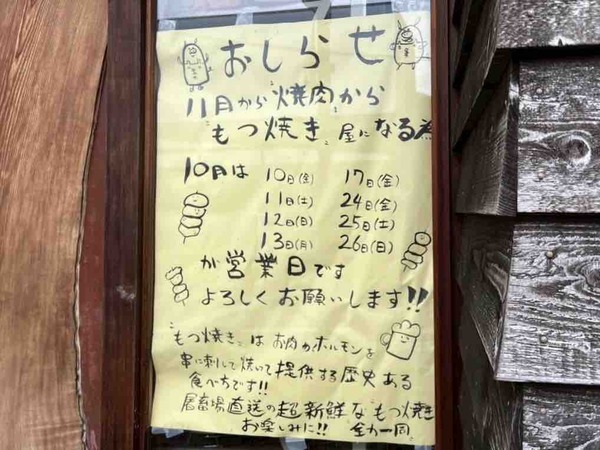 おしらせ
11月から"焼肉"から
"もつ焼き"屋になる為
10月は
10日(金) 17日(金)
11日(土) 24日(金)
12日(日) 25日(土)
13日(月) 26日(日)
が営業日です
よろしくお願いします!!
"もつ焼き"は お肉のホルモンを
串に刺して焼いて提供する歴史ある
食べ方です!!
屠畜場直送の超新鮮な"もつ焼き"
お楽しみに!! 全力一同